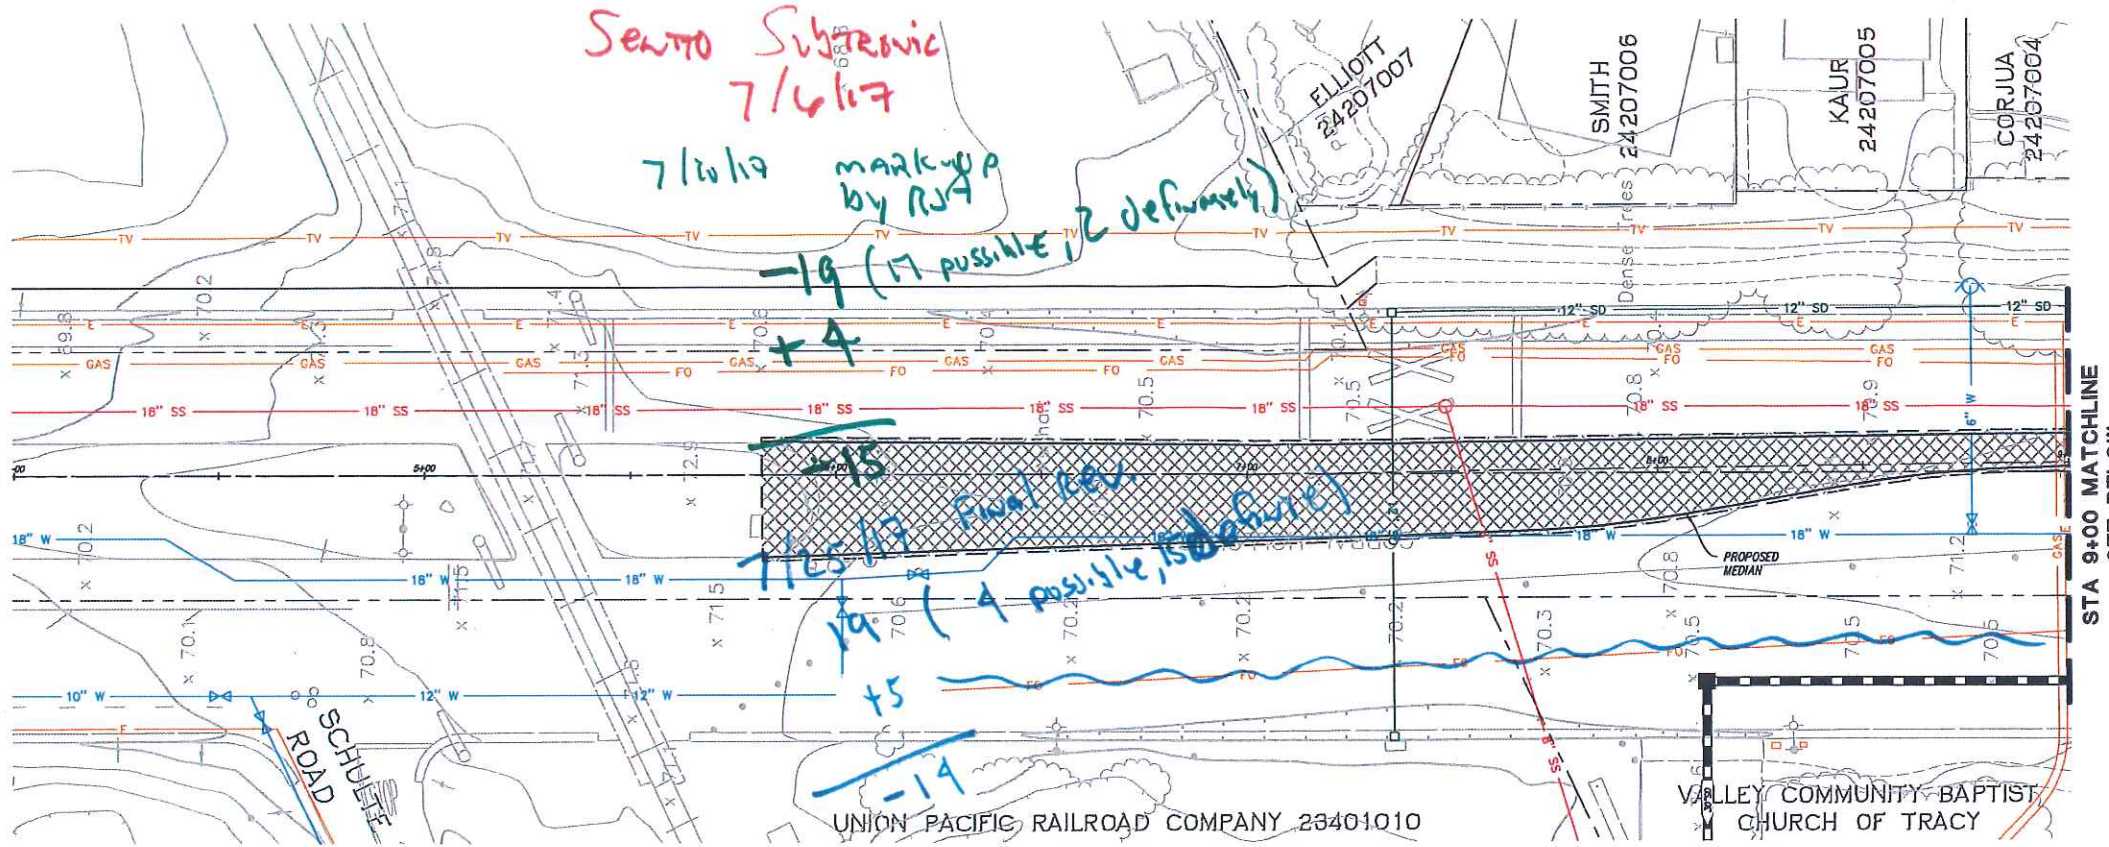 Sent to Subtronic
7/6/17
7/10/17 markup
by RJA
-19 (17 possible, 2 definately)
+4
-15
7/25/17 Final Rev.
19 (4 possible, 15 definite)
+5
-14
ELLIOTT
24207007
SMITH
24207006
KAUR
24207005
CORJUA
24207004
TV TV TV TV TV TV TV TV TV TV
Dense Trees
12" SD 12" SD 12" SD
E E E E E E E E
GAS GAS GAS GAS GAS GAS GAS GAS GAS
FO FO FO FO FO FO
18" SS 18" SS 18" SS 18" SS 18" SS 18" SS 18" SS 18" SS
6" W
69.8 70.2 71.8 70.5 70.5 70.8
5+00 7+00 8+00
72.9
18" W 18" W 18" W 18" W 18" W
PROPOSED
MEDIAN
70.2 71.5 71.5 70.6 70.2 70.2 70.2 70.3 70.8 71.2
SS
GAS
E
70.1 70.8 70.5 70.5 70.5
FO FO FO FO FO
10" W 12" W 12" W
E
8" SS
SCHULTE
ROAD
UNION PACIFIC RAILROAD COMPANY 23401010
VALLEY COMMUNITY BAPTIST
CHURCH OF TRACY
STA 9+00 MATCHLINE